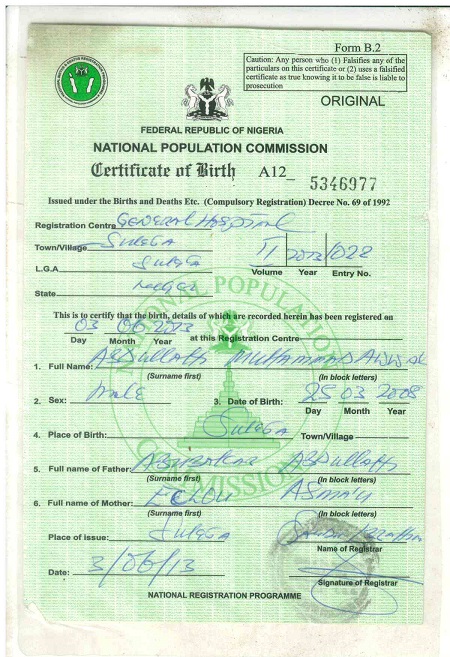 Form B.2
Caution: Any person who (1) Falsifies any of the
particulars on this certificate or (2) uses a falsified
certificate as true knowing it to be false is liable to
prosecution
ORIGINAL
FEDERAL REPUBLIC OF NIGERIA
NATIONAL POPULATION COMMISSION
Certificate of Birth A12_ 5346977
Issued under the Births and Deaths Etc. (Compulsory Registration) Decree No. 69 of 1992
Registration Centre GENERAL HOSPITAL
Town/Village SULEJA II 2013 022
L.G.A SULEJA Volume Year Entry No.
State NIGER
This is to certify that the birth, details of which are recorded herein has been registered on
03 06 2013 at this Registration Centre
Day Month Year
1. Full Name: ABDULLAHI MUHAMMAD AWWAL
(Surname first) (In block letters)
2. Sex: MALE 3. Date of Birth: 25 03 2008
Day Month Year
4. Place of Birth: SULEJA Town/Village
5. Full name of Father: ABUBAKAR ABDULLAHI
(Surname first) (In block letters)
6. Full name of Mother: ASMA'U
(Surname first) (In block letters)
Place of Issue: SULEJA
Name of Registrar
Date: 3/06/13
Signature of Registrar
NATIONAL REGISTRATION PROGRAMME
NATIONAL POPULATION COMMISSION